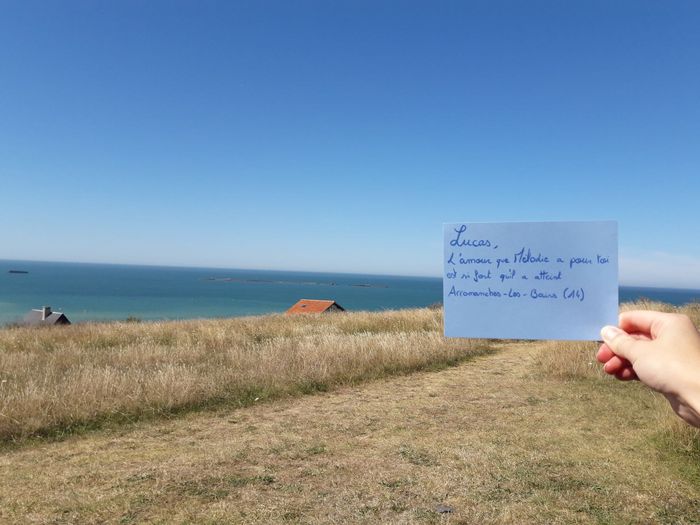 Lucas,
L'amour que Mélodie a pour toi
est si fort qu'il a atteint
Arromanches-Les-Bains (14)